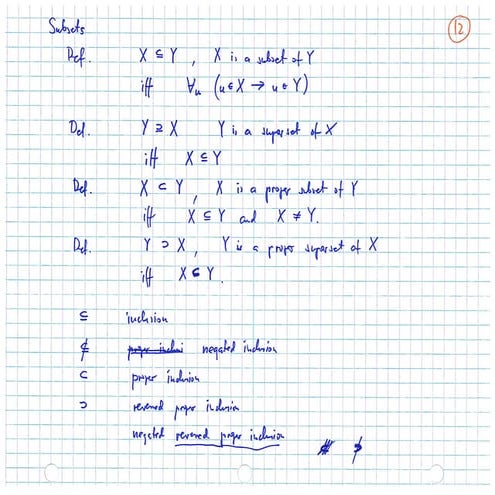 Subsets
12
Def. X ⊆ Y, X is a subset of Y
iff ∀u (u ∈ X → u ∈ Y)
Def. Y ⊇ X Y is a superset of X
iff X ⊆ Y
Def. X ⊂ Y, X is a proper subset of Y
iff X ⊆ Y and X ≠ Y.
Def. Y ⊃ X, Y is a proper superset of X
iff X ⊂ Y.
⊆ inclusion
⊄ negated inclusion
⊂ proper inclusion
⊃ reversed proper inclusion
negated reversed proper inclusion ⊅